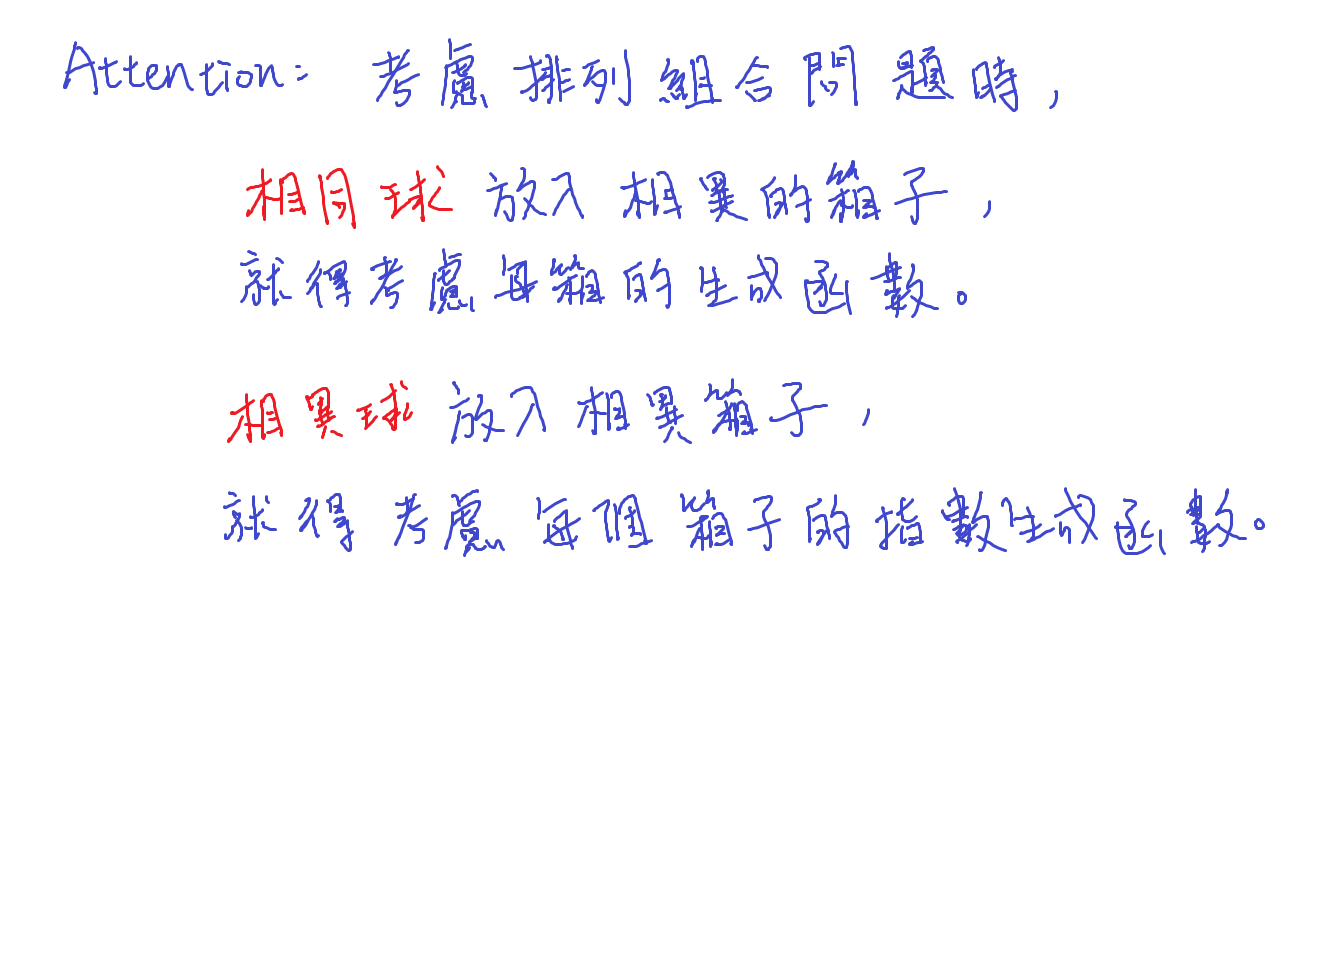 Attention: 考慮排列組合問題時,
相同球放入相異的箱子,
就得考慮每箱的生成函數。
相異球放入相異箱子,
就得考慮每個箱子的指數生成函數。